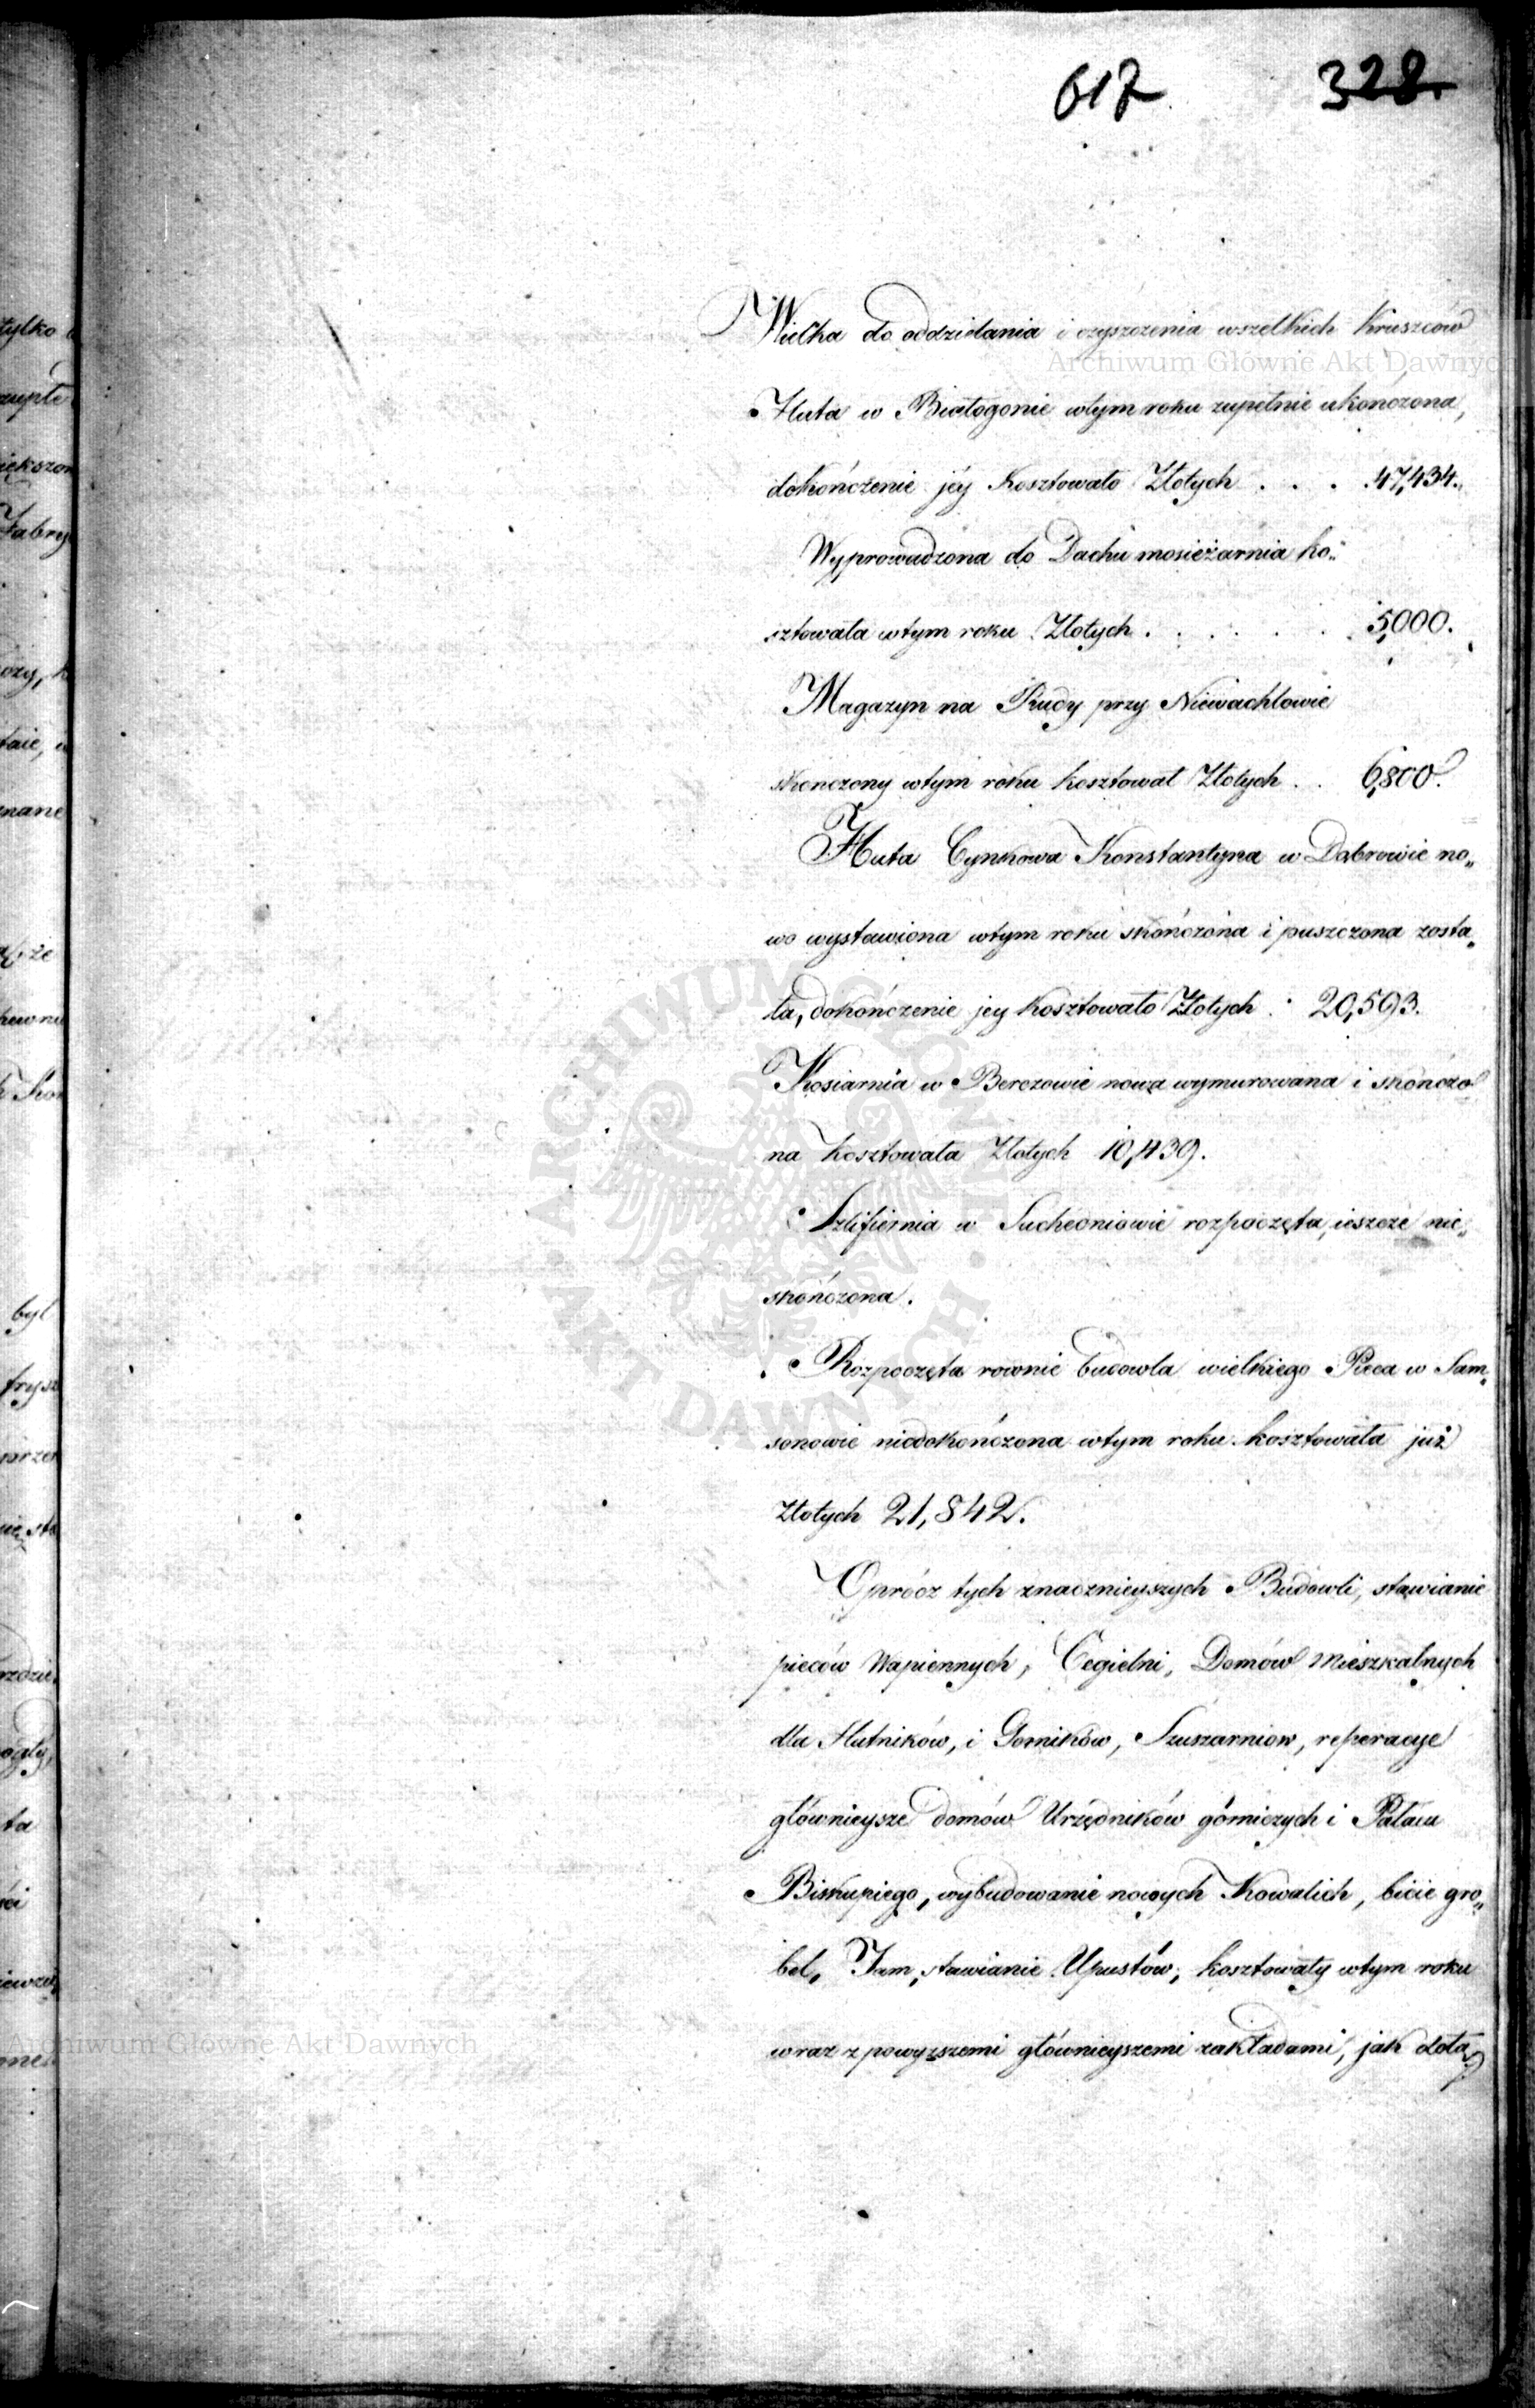 617. 328.
Wielka do oddzielania i czyszczenia wszelkich Kruszców
Archiwum Główne Akt Dawnych
Huta w Białogonie wtym roku zupełnie ukończona,
dokończenie jéy kosztowało Złotych . . . 47,434.
Wyprowadzona do Dachu mosieżarnia ko„
sztowała wtym roku Złotych . . . . . . 5,000.
Magazyn na Rudy przy Niewachlowie
skonczony wtym roku kosztował Złotych . . 6,800.
Huta Cynkowa Konstantyna w Dąbrowie no„
wo wystawiona wtym roku skończona i puszczona zosta„
ła, dokończenie jey kosztowało Złotych . 20,593.
Kosiarnia w Berezowie nowa wymurowana i skończo
na kosztowała Złotych 10,439.
Szlifiernia w Sucheoniowie rozpoczęta, ieszcze nie„
skończona.
Rozpoczęta rownie budowla wielkiego Pieca w Sam„
sonowie niedokończona wtym roku kosztowała już
Złotych 21,842.
Oprócz tych znacznieyszych Budowli, stawianie
pieców Wapiennych, Cegielni, Domów Mieszkalnych
dla Hutników, i Gorników, Szuszarniow, reperacye
głównieysze domów Urzędników górniczych i Pałacu
Biskupiego, wybudowanie nowych Kowalich, bicie gro„
bel, Tam, stawianie Upustów, kosztowały wtym roku
wraz z powyzszemi główniejszemi zakładami, jak dołą
Archiwum Główne Akt Dawnych
ARCHIWUM GŁÓWNE · AKT DAWNYCH ·
tylko
zupłe
iększon
Fabry
ozy, k
taie, w
nane
że
hewne
był
frysz
ta